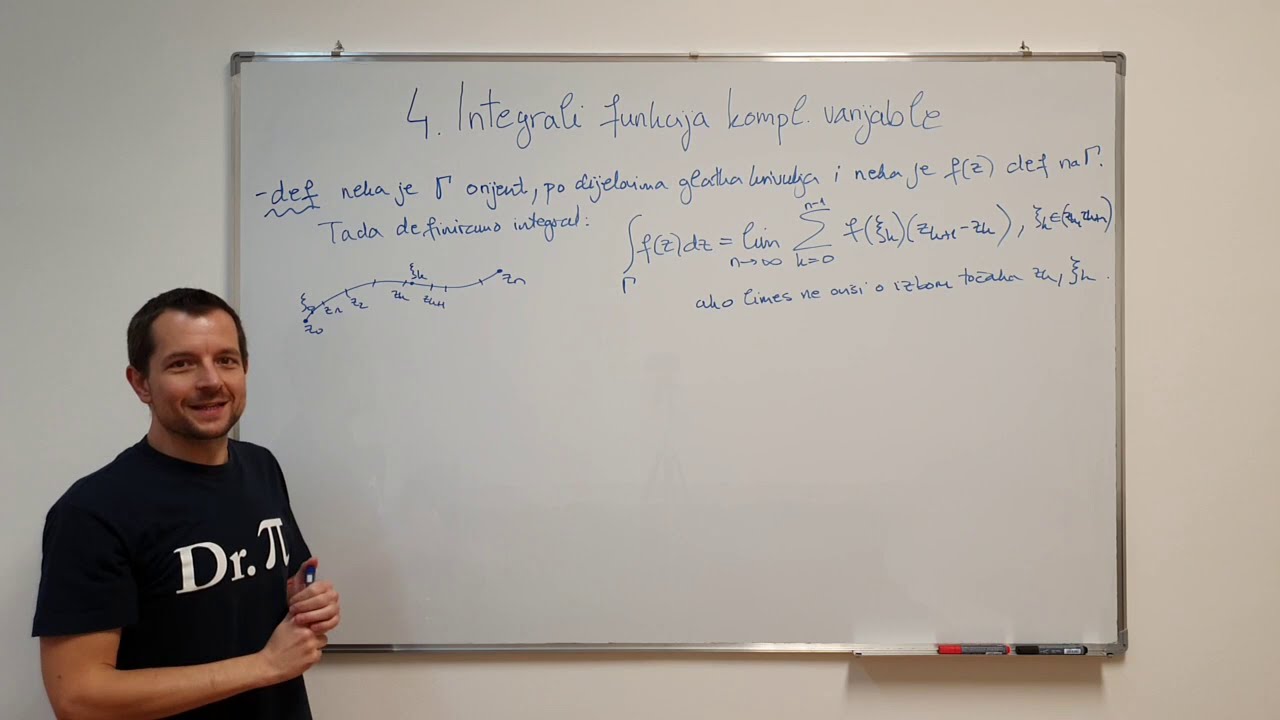 4. Integrali funkcija kompl. varijable
- def neka je Γ orijent., po dijelovima glatka krivulja i neka je f(z) def na Γ.
Tada definiramo integral: ∫_Γ f(z)dz = lim_{n→∞} ∑_{k=0}^{n-1} f(ξ_k)(z_{k+1}-z_k), ξ_k∈(z_k, z_{k+1})
ako limes ne ovisi o izboru točaka z_k, ξ_k.
z_0 ξ_0 z_1 z_2 z_k ξ_k z_{k+1} z_n
Dr. π